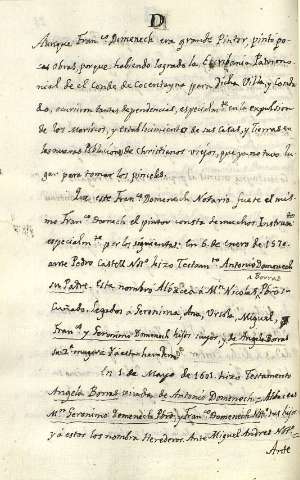 D
Aunque Fran.co Domenech era grande Pintor, pinto po-
cas obras, porque habiendo logrado la Escribania Patrimo-
nial de el Conde de Cocentayna para dicha Villa, y Conda-
do, ocurrieron tantas dependencias, especialm.te en la expulsion
de los Moriscos, y establecimiento de sus Casas, y Tierras en
las nuevas Poblacion.s de Christianos viejos, que ya no tuvo lu-
gar para tomar los pinceles.
Que este Fran.co Domenech Notario, fuese el mis-
mo Fran.co Domenech el pintor consta de muchos Instrum.tos
especialm.te por los siguientes: En 6 de enero de 1570
ante Pedro Castell Not.o hizo Testam.to Antonio Domenech
a Borras
su Padre. Este nombrò Albacea à M.n Nicolas, Pbro su
Cuñado. Legados a Geronima, Ana, Ursola, Miquel,
Fran.co y Geronimo Domenech hijos suyos, y de Angela Borras
su 2.a muger
En 1 de Mayo de 1601. hizo Testamento
Angela Borras viuda de Antonio Domenech. Albaceas
M.n Geronimo Domenech Pbro, y Fran.co Domenech Not.o sus hijos
y à estos los nombra Herederos. Ante Miguel Andres Not.o
Ante